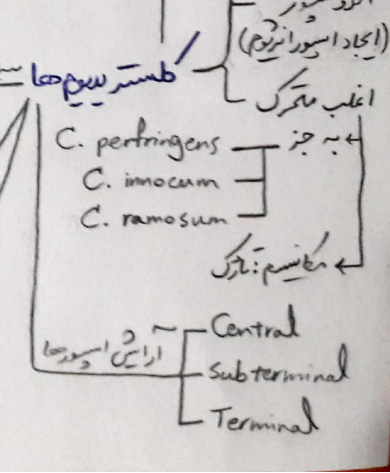 (ایجاد اسپور اندوسپور)
کلستریدیوم ها
اغلب متحرک
به جز
C. perfringens
C. innocum
C. ramosum
مکانیسم: تاژک
آرایش اسپورها
Central
Subterminal
Terminal